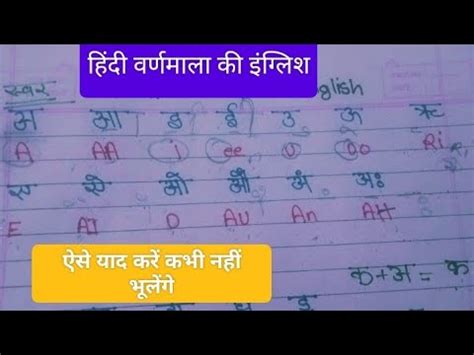 हिंदी वर्णमाला की इंग्लिश
स्वर
glish
अ आ इ ई उ ऊ ऋ
A AA i ee U oo Ri
ए ऐ ओ औ अं अः
E AI O AU An AH
ऐसे याद करें कभी नहीं
भूलेंगे
क+अ = क